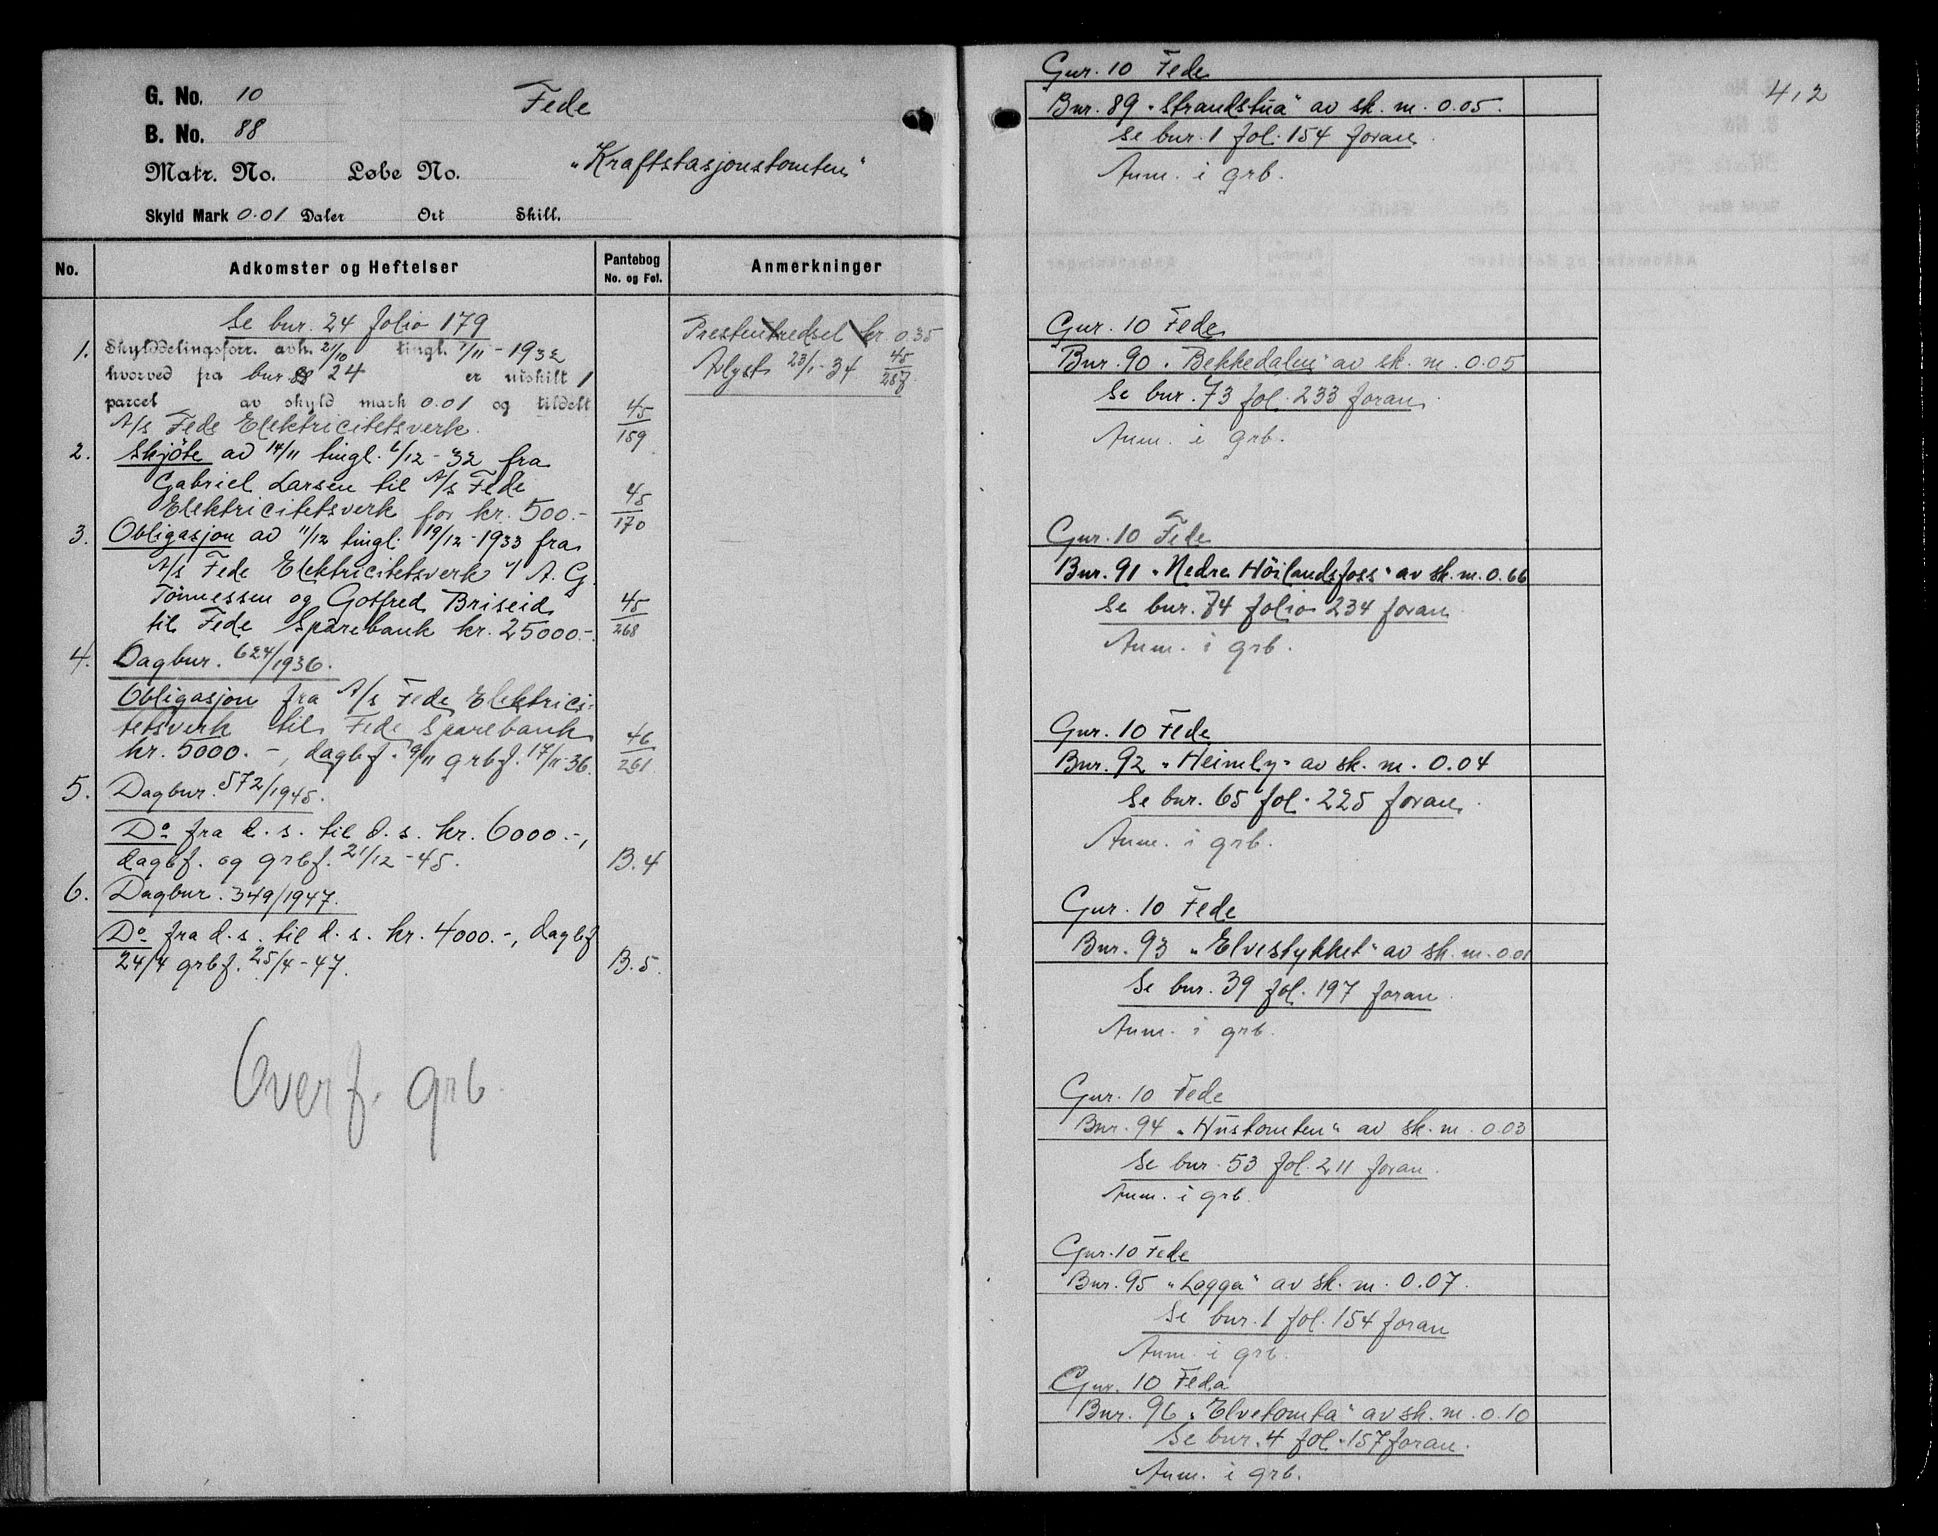 G. No. 10
Fede
B. No. 88
Matr. No. Løbe No.
"Kraftstasjonstomten"
Skyld Mark 0.01 Daler Ort Skill.
No.
Adkomster og Heftelser
Pantebog
No. og Fol.
Anmerkninger
Se bnr. 24 folio 179
1. Skylddelingsforr. avh. 21/10 tingl. 7/11 - 1932
hvorved fra bnr 24 er utskilt 1
parcel av skyld mark 0.01 og tildelt
A/s Fede Elektricitetsverk. 45/159
2. Skjöte av 14/11 tingl. 6/12 - 32 fra
Gabriel Larsen til A/s Fede
Elektricitetsverk for kr. 500.- 45/170
3. Obligasjon av 11/12 tingl. 19/12 - 1933 fra
A/s Fede Elektricitetsverk v/ A. G.
Tönnessen og Gotfred Briseid
til Fede Sparebank kr. 25000.-. 45/268
4. Dagbnr. 624/1936.
Obligasjon fra A/s Fede Elektrici-
tetsverk til Fede Sparebank
kr. 5000.-, dagbf. 9/11 grbf. 17/11-36. 46/261
5. Dagbnr. 572/1945.
Do fra d. s. til d. s. kr. 6000.-,
dagbf. og grbf. 21/12 - 45. B. 4
6. Dagbnr. 349/1947.
Do fra d. s. til d. s. kr. 4000.-, dagbf
24/4 grbf. 25/4 - 47. B. 5.
Overf. grb.
kr. 0.35
Avlyst 23/1 - 34 45/287
412
Gnr. 10 Fede
Bnr. 89 "Strandstua" av sk. m. 0.05.
Se bnr. 1 fol. 154 foran.
Anm. i grb.
Gnr. 10 Fede
Bnr. 90 "Bekkedalen" av sk. m. 0.05
Se bnr. 73 fol. 233 foran.
Anm. i grb.
Gnr. 10 Fede
Bnr. 91 "Nedre Höilandsfoss" av sk. m. 0.66
Se bnr. 74 folio 234 foran.
Anm. i grb.
Gnr. 10 Fede
Bnr. 92 "Heimly" av sk. m. 0.04
Se bnr. 65 fol. 225 foran.
Anm. i grb.
Gnr. 10 Fede
Bnr. 93 "Elvestykket" av sk. m. 0.01
Se bnr. 39 fol. 197 foran.
Anm. i grb.
Gnr. 10 Fede
Bnr. 94 "Hustomten" av sk. m. 0.03
Se bnr. 53 fol. 211 foran.
Anm. i grb.
Gnr. 10 Fede
Bnr. 95 "Logga" av sk. m. 0.07.
Se bnr. 1 fol. 154 foran
Anm. i grb.
Gnr. 10 Feda
Bnr. 96 "Elvetomta" av sk. m. 0.10
Se bnr. 4 fol. 157 foran.
Anm. i grb.